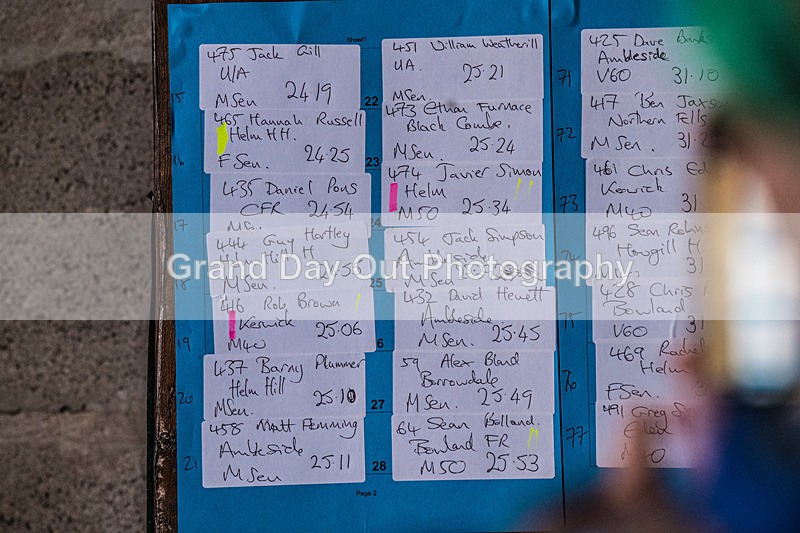 Sheet1
15
475 Jack Gill
U/A
MSen 24.19
16
465 Hannah Russell
Helm H.H.
FSen. 24.25
17
435 Daniel Pons
CFR 24.54
18
444 Guy Hartley
Helm Hill H
MSen.
19
416 Rob Brown
Keswick 25.06
M40
20
437 Barny Plummer
Helm Hill
MSen. 25.10
21
458 Matt Flemming
Ambleside
MSen 25.11
22
451 William Weatherill
UA. 25.21
MSen.
23
473 Ethan Furnace
Black Combe.
MSen. 25.24
474 Javier Simon
Helm
M50 25.34
25
454 Jack Simpson
Ambleside
MSen.
6
432 David Hewett
Ambleside
MSen. 25.45
27
59 Alex Bland
Borrowdale
MSen. 25.49
28
64 Sean Bolland.
Bowland FR
M50 25.53
Page 2
71
425 Dave
Ambleside
V60 31.10
72
417 Ben
Northern Fells
MSen. 31.2
73
461 Chris
Keswick
M40 31
74
496 Sean
Howgill H
31
75
428 Chris
Bowland
V60 31
76
469 Rachel
Helm
FSen. 3
77
491 Greg
Grand Day Out Photography